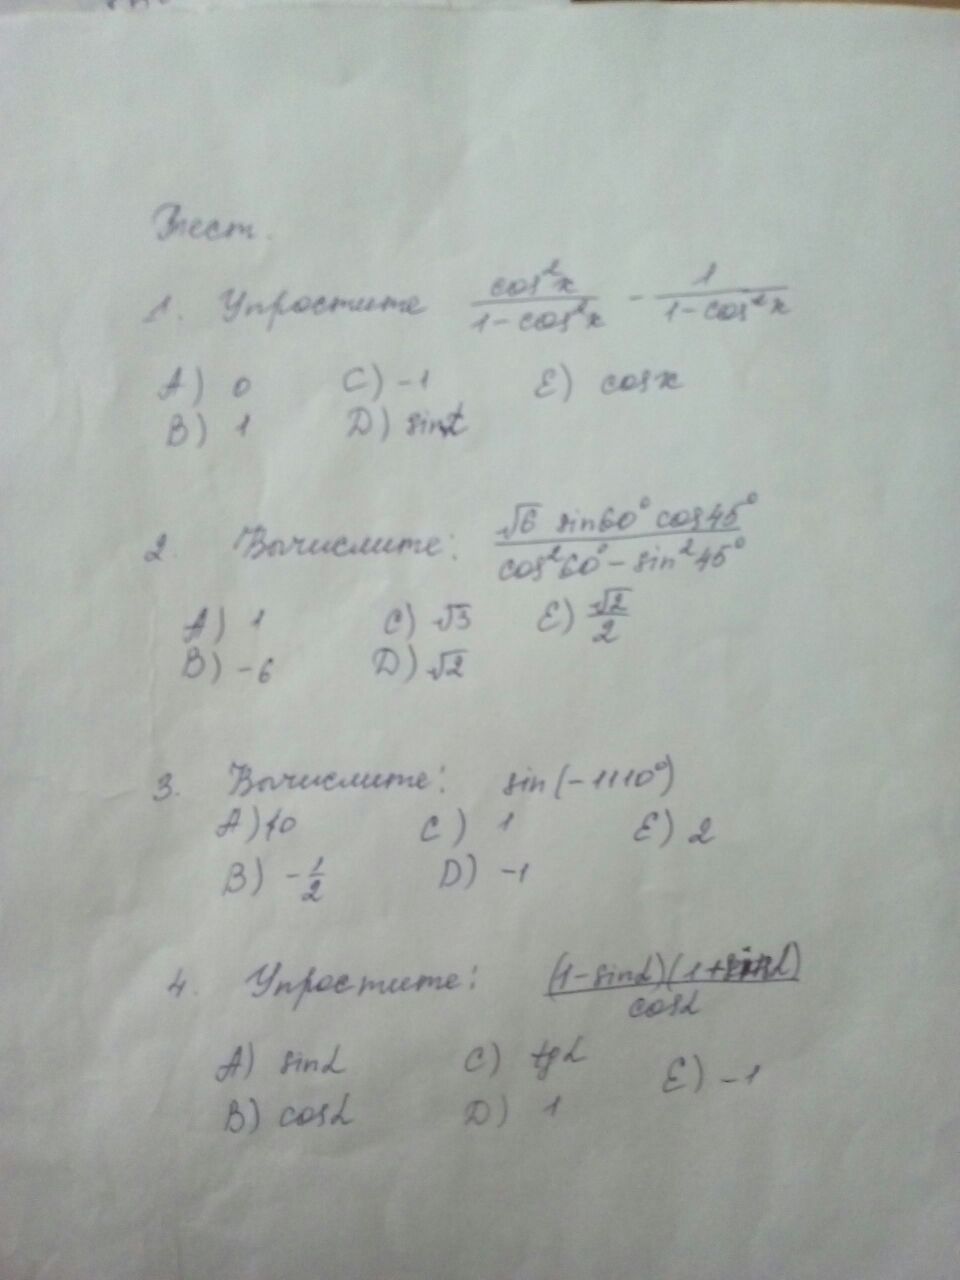 Тест.
1. Упростите cos²x/(1-cos²x) - 1/(1-cos²x)
A) 0 C) -1 E) cos x
B) 1 D) sin α
2. Вычислите: √6 sin60° cos45°/(cos²60° - sin²45°)
A) 1 C) √3 E) √2/2
B) -6 D) √2
3. Вычислите: sin(-1110°)
A) 10 C) 1 E) 2
B) -1/2 D) -1
4. Упростите: (1-sinα)(1+sinα)/cosα
A) sinα C) tgα E) -1
B) cosα D) 1